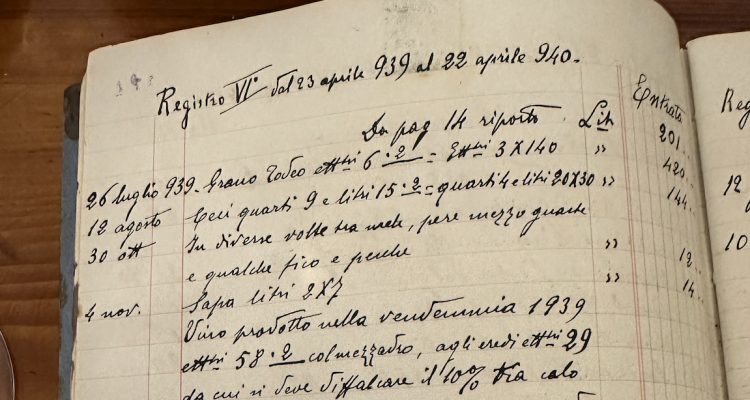 Registro VI° dal 23 aprile 939 al 22 aprile 940.
Entrata
Da pag 14 riporto Lit 201..
26 luglio 939. Grano Rodeo ett.tri 6 : 2 = Ett.tri 3 X 140 " 420..
12 agosto Ceci quarti 9 e litri 15 : 2 = quarti 4 e litri 20 X 30 " 144..
30 ott In diverse volte tra mele, pere mezzo guaste
e qualche fico e pesche " 12..
4 nov. Sapa litri 2 X 7 " 14..
Vino prodotto nella vendemmia 1939
ett.tri 58 : 2 col mezzadro, agli eredi ett.tri 29
da cui si deve diffalcare il 10% tra calo
Reg
12
10